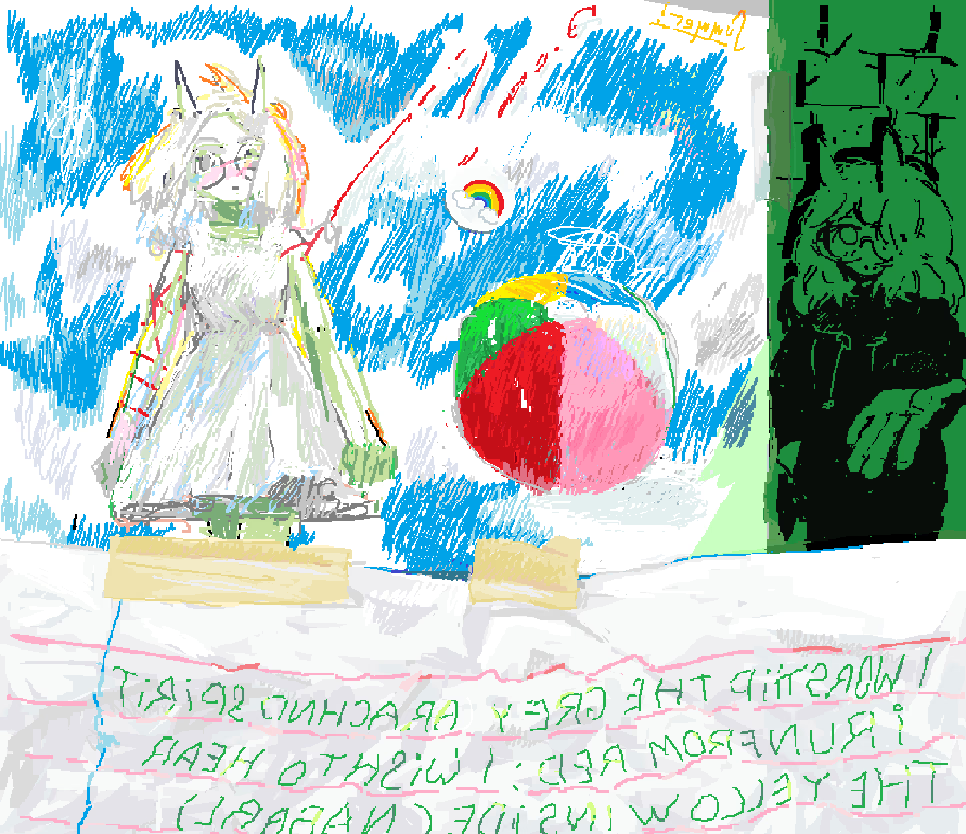 I WORSHIP THE GREY ARACHND SPIRIT
I RUN FROM RED ; I WISH TO HEAR
THE YELLOW INSIDE